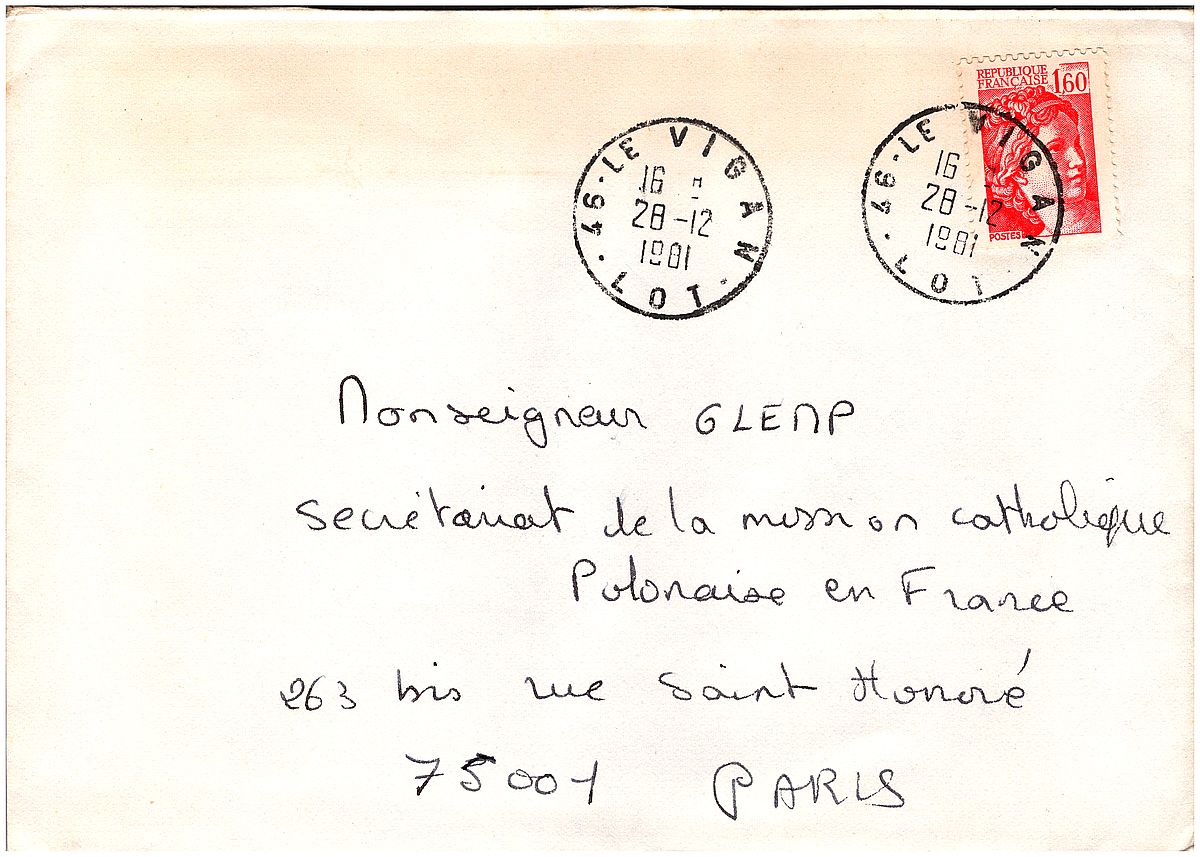 REPUBLIQUE
FRANÇAISE 1,60
POSTES
46 - LE VIGAN
16 H
28-12
1981
LOT
46 - LE VIGAN
16
28-12
1981
LOT
Monseigneur GLEMP
Secrétariat de la mission catholique
Polonaise en France
263 bis rue Saint Honoré
75001 PARIS